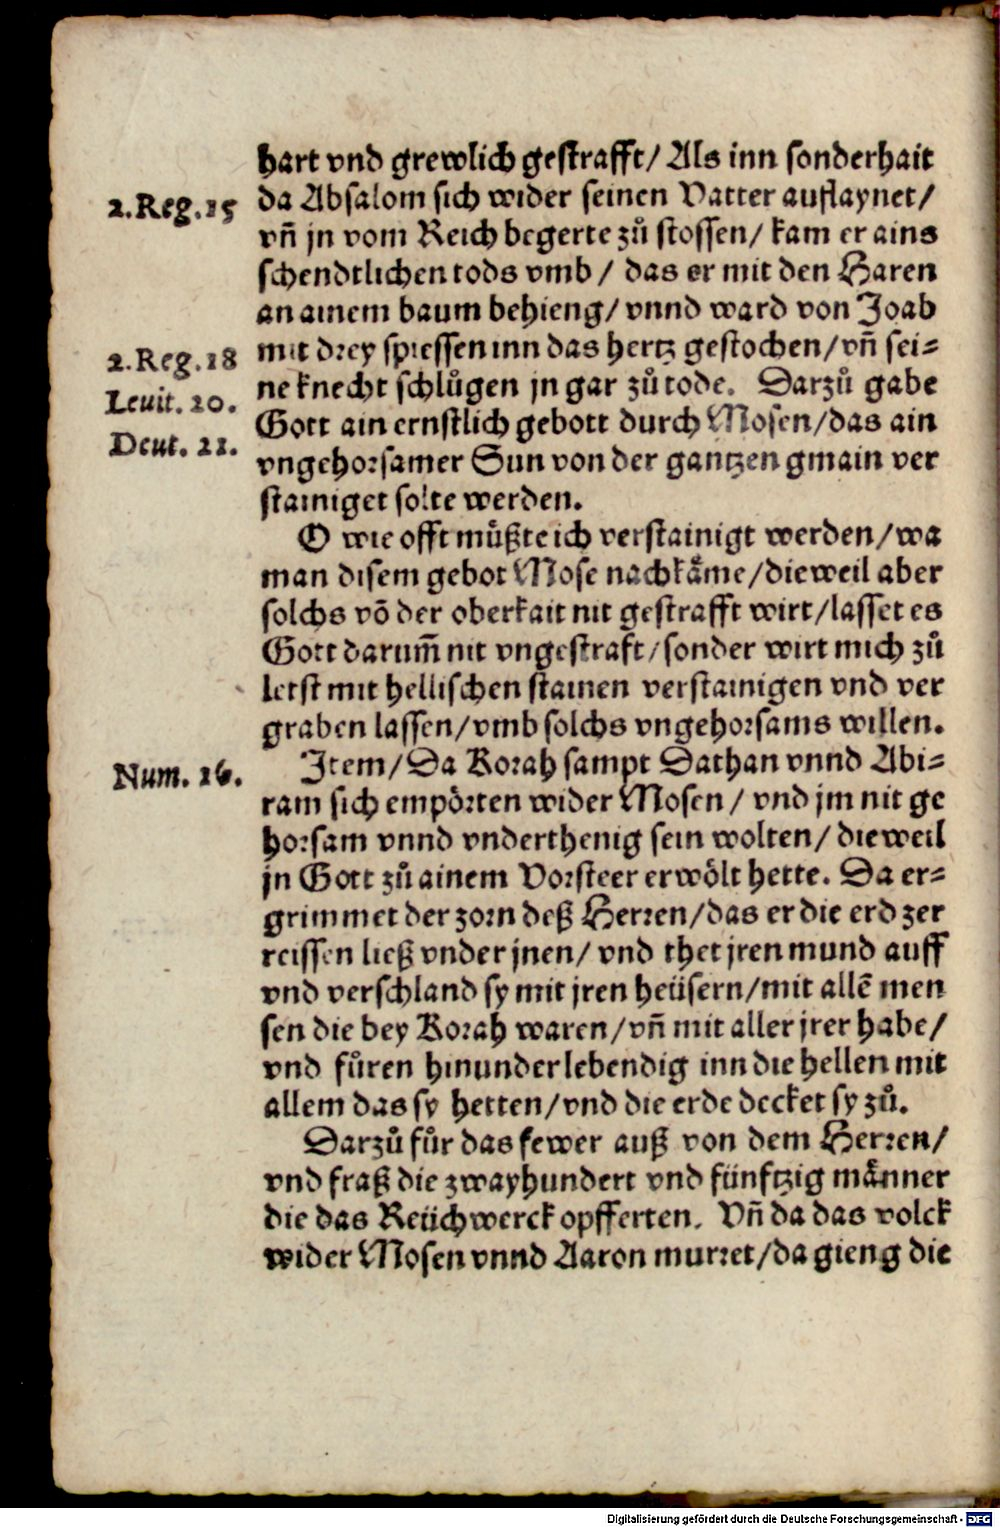 hart vnd grewlich gestrafft/ Als inn sonderhait
2.Reg.15
da Absalom sich wider seinen Vatter auflaynet/
vñ jn vom Reich begerte zů stossen/ kam er ains
schendtlichen tods vmb/ das er mit den Haren
an ainem baum behieng/ vnnd ward von Joab
2.Reg.18
mit drey spiessen inn das hertz gestochen/vñ sei=
Leuit.20.
ne knecht schlůgen jn gar zů tode. Darzů gabe
Deut. 21.
Gott ain ernstlich gebott durch Mosen/das ain
vngehorsamer Sun von der gantzen gmain ver
stainiget solte werden.
O wie offt můßte ich verstainigt werden/wa
man disem gebot Mose nachkäme/dieweil aber
solchs võ der oberkait nit gestrafft wirt/lasset es
Gott darum̃ nit vngestraft/sonder wirt mich zů
letst mit hellischen stainen verstainigen vnd ver
graben lassen/vmb solchs vngehorsams willen.
Num. 16.
Item/Da Korah sampt Dathan vnnd Abi=
ram sich empörten wider Mosen/ vnd jm nit ge
horsam vnnd vnderthenig sein wolten/ dieweil
jn Gott zů ainem Vorsteer erwölt hette. Da er=
grimmet der zorn deß Herren/das er die erd zer
reissen ließ vnder jnen/ vnd thet jren mund auff
vnd verschland sy mit jren heüsern/mit allẽ men
sen die bey Korah waren/vñ mit aller jrer habe/
vnd fůren hinunder lebendig inn die hellen mit
allem das sy hetten/vnd die erde decket sy zů.
Darzů fůr das fewer auß von dem Herren/
vnd fraß die zwayhundert vnd fünftzig männer
die das Reüchwerck opfferten. Vñ da das volck
wider Mosen vnnd Aaron murret/da gieng die
Digitalisierung gefördert durch die Deutsche Forschungsgemeinschaft - DFG